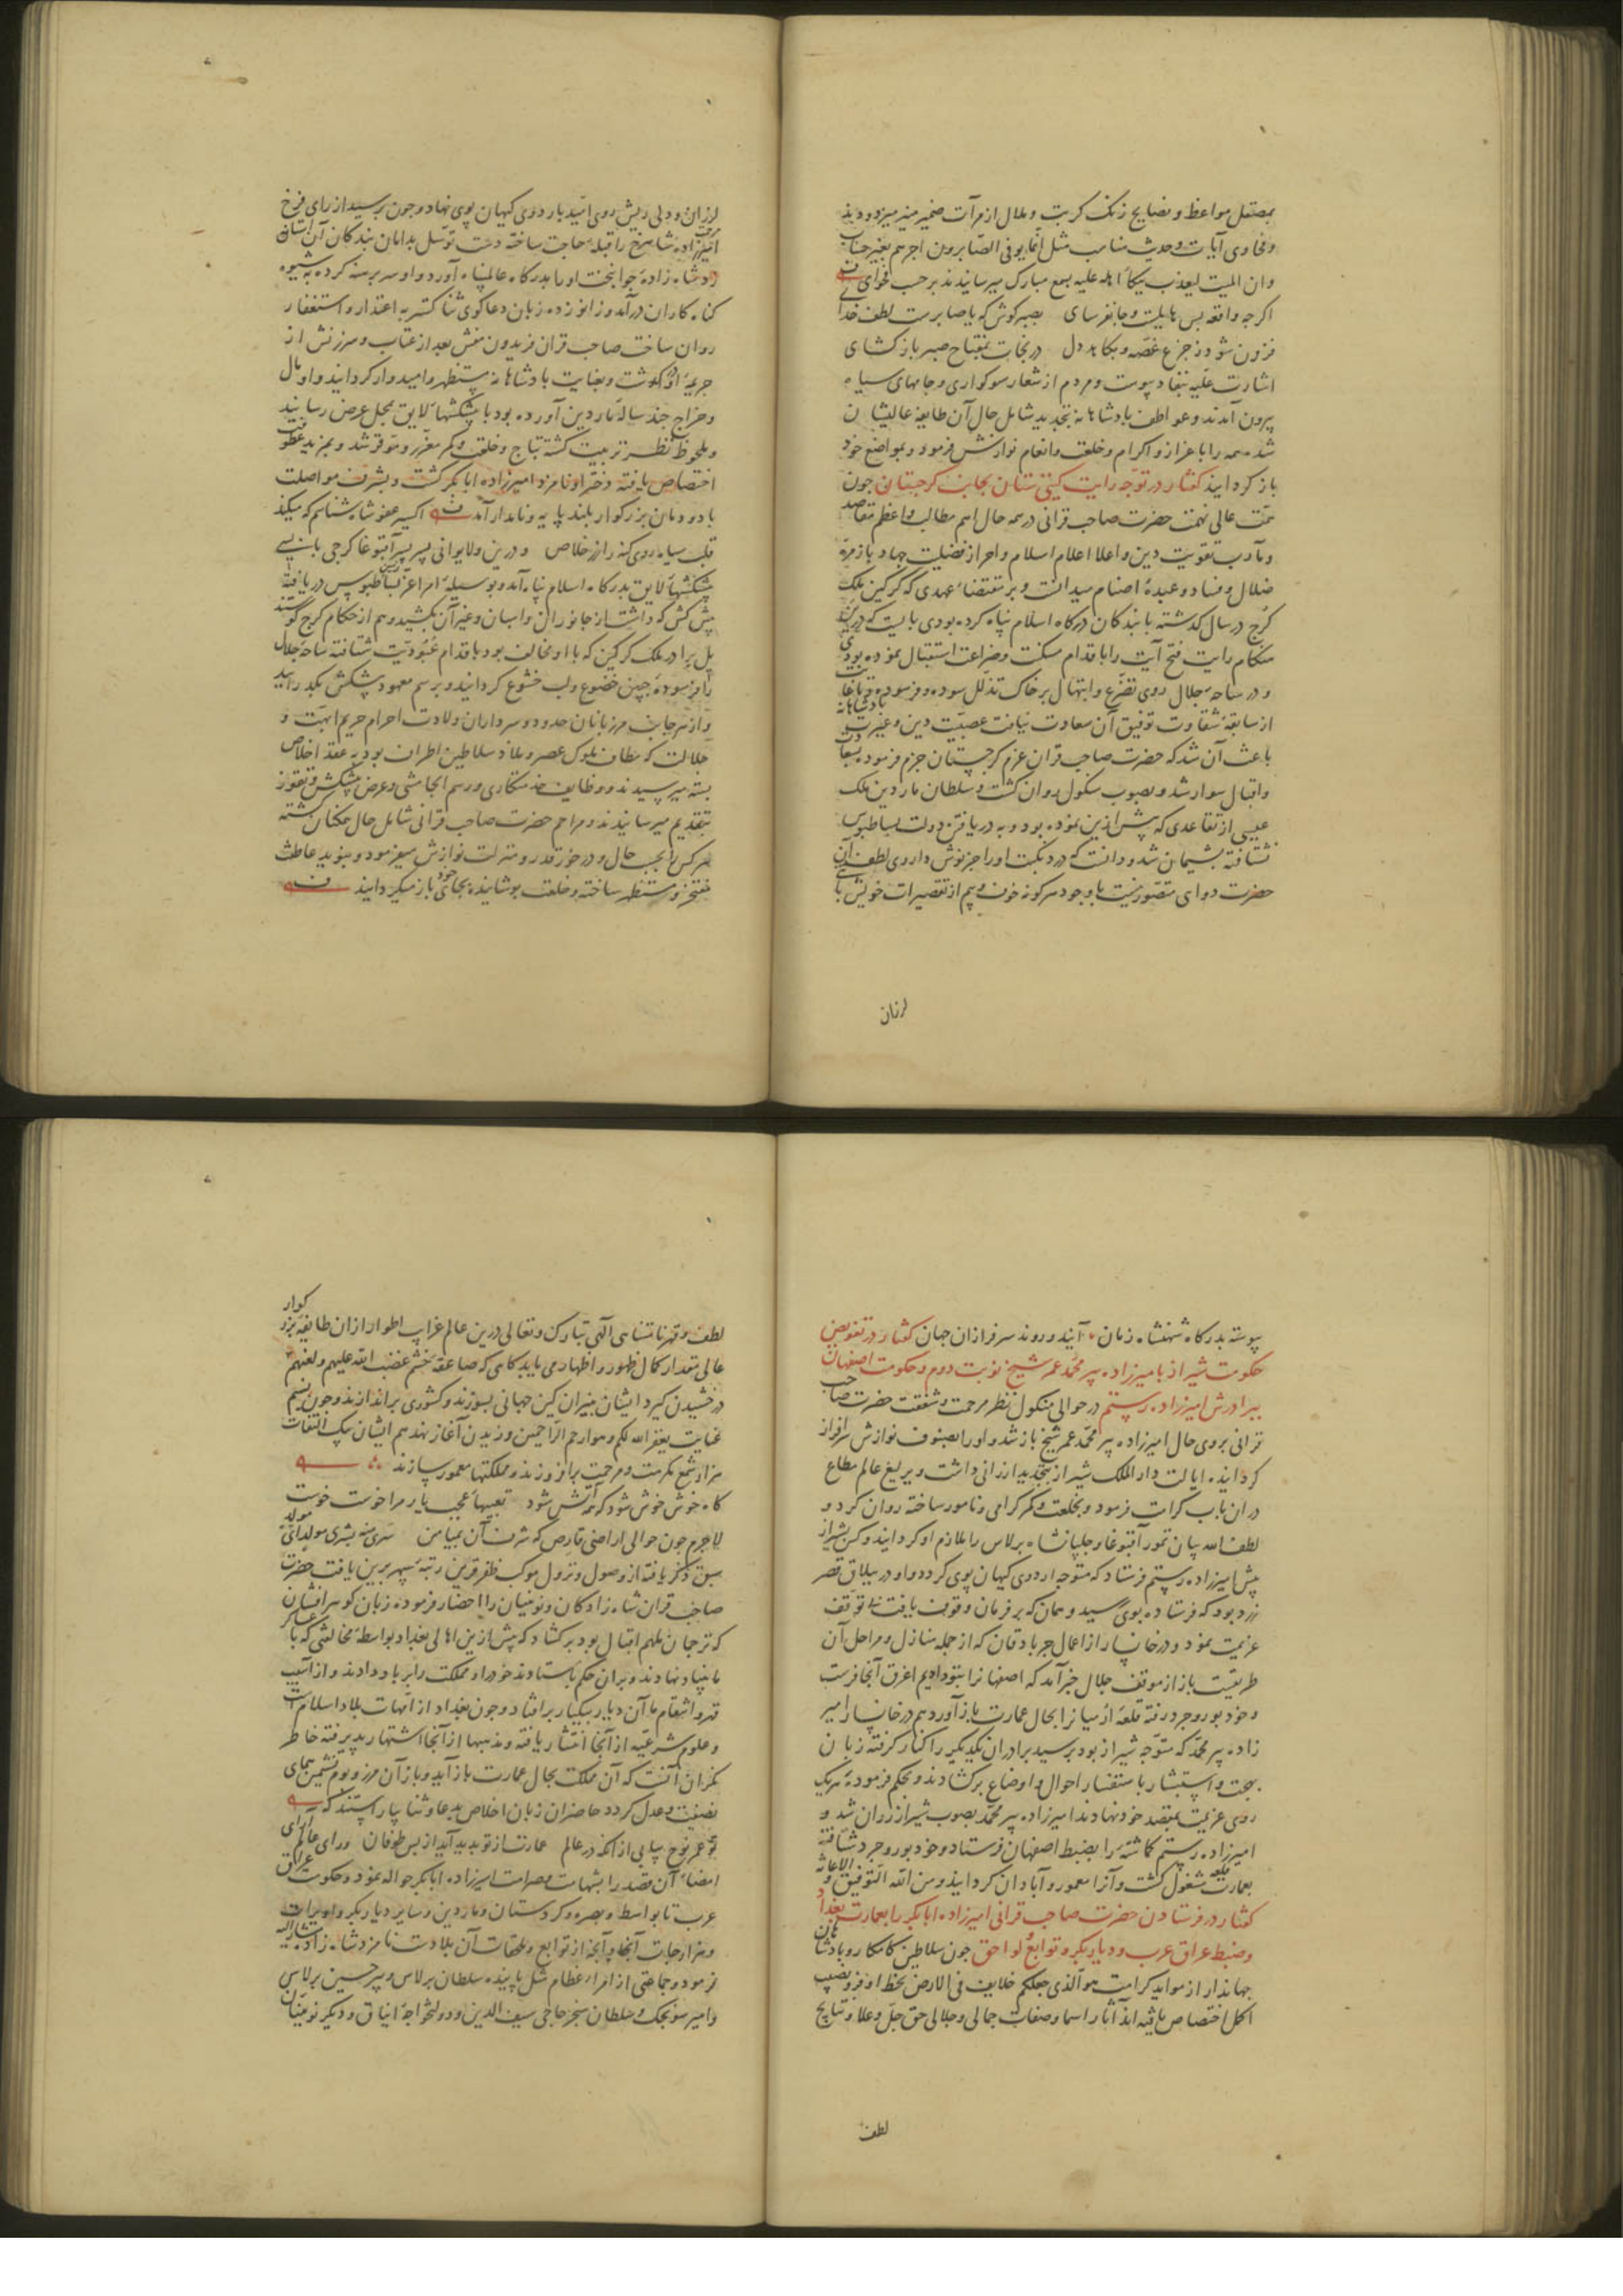 بمصقل مواعظ و نصایح زنک کربت و ملال از مرآت ضمیر منیر میزدودند
و فحاوی آیات و حدیث مناسب مثل انما یوفی الصابرون اجرهم بغیر حساب
و ان المیت لیعذب ببکاء اهله علیه بسمع مبارک میرسانیدند بر حسب فحوای
اکرچه واقعه بس هایلست و جانفرسای بصبر کوش که با صابرست لطف خدا
فزون شود ز جزع غصه و بکاهد دل در نجات بمفتاح صبر باز کشای
اشارت علیه بنفاد پیوست و مردم از شعار سوکواری و جامهای سیاه
بیرون آمدند و عواطف پادشاهانه بتجدید شامل حال آن طایفه عالیشان
شد همه را باعزاز و اکرام و خلعت و انعام نوازش فرمود و بمواضع خود
باز کردانید کفتار در توجه رایت کیتی ستان بجانب کرجستان چون
همت عالی نهمت حضرت صاحب قرانی در همه حال اهم مطالب و اعظم مقاصد
و مآرب تقویت دین و اعلا اعلام اسلام و احراز فضیلت جهاد با زمره
ضلال و فساد و عبده اصنام میدانست و بر مقتضاء عهدی که کرکین ملک
کرج در سال کذشته با بندکان درکاه اسلام پناه کرده بودی بایست که درین
هنکام رایت فتح آیت را باقدام مسکنت و ضراعت استقبال نموده بودی
و در ساحه جلال روی تضرع و ابتهال بر خاک تذلل سوده و فرسوده
از سابقه شقاوت توفیق آن سعادت نیافت عصبیت دین و غیرت پادشاهانه
باعث آن شد که حضرت صاحب قران عزم کرجستان جزم فرموده بسعادت
و اقبال سوار شد و بصوب منکول روان کشت و سلطان ماردین ملک
عیسی از تقاعدی که پیش ازین نموده بود و به دریافتن دولت بساطبوس
نشتافته پشیمان شد و دانست که درد نکبت او را جز نوش داروی لطف آن
حضرت دوای متصور نیست با وجود هرکونه خوف و بیم از تقصیرات خویش با
لرزان
لرزان و دلی ریش روی امید باردوی کیهان پوی نهاد و چون برسید از رای فرخ
امیرزاده شاهرخ را قبله حاجت ساخته دست توسل بدامان بندکان آن آستان زد
و شاه زاده جوانبخت او را بدرکاه عالمپناه آورد و او سر برهنه کرده به شیوه
کناه کاران درآمد و زانو زده زبان دعا کوی ثنا کستر به اعتذار و استغفار
روان ساخت صاحب قران فریدون منش بعد از عتاب و سرزنش از
جریمه او درکذشت و بعنایت پادشاهانه مستظهر و امیدوار کردانید و او مال
و خراج چند ساله ماردین آورده بود با پیشکشهاء لایق بمحل عرض رسانید
و ملحوظ نظر تربیت کشته بتاج و خلعت و کمر معزز و موقر شد و بمزید عطوفت
اختصاص یافته دختر او نامزد امیرزاده ابابکر کشت و بشرف مواصلت
با دودمان بزرکوار بلند پایه و نامدار آمد اکسیر عفو شاه شناسم که میکند
قلب سیاه روی کنه را زر خلاص و درین ولا یوانی پسر آقبوغا کرجی با بسی
پیشکشهاء لایق بدرکاه اسلام پناه آمد و بوسیله امرا عز بساطبوس دریافته
پیش کش که داشت از جانوران و اسبان و غیر آن بکشید و هم از حکام کرج کوستندیل
برادر ملک کرکین که با او مخالف بود باقدام عبودیت شتافته ساحه جلال
را فرسوده جبین خضوع و لب خشوع کردانید و برسم معهود پیشکش بکذرانید
و از هر جانب مرزبانان حدود و سرداران ولادت احرام حریم ابهت و
جلالت که مطاف ملوک عصر و ملاذ سلاطین اطراف بود به عقد اخلاص
بسته میرسیدند و وظایف خدمتکاری و رسم الجامشی و عرض پیشکش و تقوز
بتقدیم میرسانیدند و مراحم حضرت صاحب قرانی شامل حال همکنان کشته
هرکس را بحسب حال و در خور قدر و منزلت نوازش میفرمود و بنوید عاطفت
مفتخر و مستظهر ساخته و خلعت پوشانیده بجای خود باز میکردانید
پیوسته بدرکاه شهنشاه زمان آیند و روند سرفرازان جهان کفتار در تفویض
حکومت شیراز بامیرزاده پیر محمد عمر شیخ نوبت دوم و حکومت اصفهان
ببرادرش امیرزاده رستم در حوالی منکول نظر مرحمت و شفقت حضرت صاحب
قرانی بروی حال امیرزاده پیر محمد عمر شیخ باز شد و او را بصنوف نوازش سرافراز
کردانیده ایالت دارالملک شیراز بتجدید ارزانی داشت و یرلیغ عالم مطاع
در ان باب کرامت فرمود و بخلعت و کمر کرامی و نامور ساخته روان کرد و
لطف الله بیان تمور آقبوغا و جلبانشاه برلاس را ملازم او کردانید و کس بشیراز
پیش امیرزاده رستم فرستاد که متوجه اردوی کیهان پوی کردد و او در ییلاق قصر
زرد بود که فرستاده بوی رسید و همان که بر فرمان وقوف یافت بی توقف
عزیمت نمود و در خانسار از اعمال جربادقان که از جمله منازل و مراحل آن
طریقست باز از موقف جلال خبر آمد که اصفهانرا بتو دادیم اغرق آنجا فرست
و خود بوروجرد رفته قلعه ارمیانرا بحال عمارت باز آور و هم در خانسار امیر
زاده پیر محمد که متوجه شیراز بود برسید برادران یکدیکر را کنار کرفته زبان
بهجت و استبشار باستفسار احوال و اوضاع برکشادند و بحکم فرموده هریک
روی عزیمت بمقصد خود نهادند امیرزاده پیر محمد بصوب شیراز روان شد و
امیرزاده رستم کماشته را بضبط اصفهان فرستاد و خود بوروجرد شتافته
بعمارت قلعه مشغول کشت و آنرا معمور و آبادان کردانید و من الله التوفیق و الاعانه
کفتار در فرستادن حضرت صاحب قرانی امیرزاده ابابکر را بعمارت بغداد
و ضبط عراق عرب و دیاربکر و توابع و لواحق چون سلاطین کامکار و پادشاهان
جهاندار از مواید کرامت هو الذی جعلکم خلایف فی الارض بحظ اوفر و نصیب
اکمل اختصاص یافته اند آثار اسما و صفات جمالی و جلالی حق جل و علا و نتایج
لطف
لطف و قهر نامتناهی الهی تبارک و تعالی درین عالم غرایب اطوار ازان طایفه بزرکوار
عالی مقدار کمال ظهور و اظهار می یابد کاهی که صاعقه خشم غضب الله علیهم و لعنهم
درخشیدن کیرد ایشان بنیران کین جهانی بسوزند و کشوری براندازند و چون نسیم
عنایت یغفر الله لکم و هو ارحم الراحمین وزیدن آغاز نهد هم ایشان بیک التفات
هزار شمع مکرمت و مرحمت برافروزند و مملکتها معمور سازند
کاه خوش خوش شود که همه آتش شود تعبیهاء عجب یار مرا خوست خوست
لاجرم چون حوالی اراضی قارص که شرف آن بمیامن
سبق ذکر یافته از وصول و نزول موکب ظفر قرین رتبه سپهر برین یافت حضرت
صاحب قران شاه زادکان و نوینیان را احضار فرموده زبان کوهر افشان
که ترجمان ملهم اقبال بود برکشاد که پیش ازین اهالی بغداد بواسطه مخالفتی که با عساکر
ما بنیاد نهادند و بران حکم باستادند خود را و مملکت را بر باد دادند و از آسیب
قهر و انتقام ما آن دیار بیکبار برافتاد و چون بغداد از امهات بلاد اسلامست
و علوم شرعیه از آنجا انتشار یافته و مذهبها از آنجا اشتهار پذیرفته خاطر
نکران آنست که آن مملکت بحال عمارت باز آید و باز آن مرز و بوم نشیمن همای
نصفت و عدل کردد حاضران زبان اخلاص بدعا و ثنا بیاراستند که
تو عمر نوح بیابی از آنکه در عالم عمارت از تو پدید آید از پس طوفان و رای عالم آرای
امضاء آن قصد را بشهامت و صرامت امیرزاده ابابکر حواله نمود و حکومت عراق
عرب تا بواسط و بصره و کردستان و ماردین و سایر دیاربکر و اویرات
و هزارجات آنجا و آنچه از توابع و ملحقات آن بلادست نامزد شاه زاده مشارالیه
فرمود و جماعتی از امراء عظام مثل پاینده سلطان برلاس و پیر حسین برلاس
و امیر سونجک و سلطان سنجر حاجی سیف الدین و دولتخواجه ایناق و دیکر نوینان